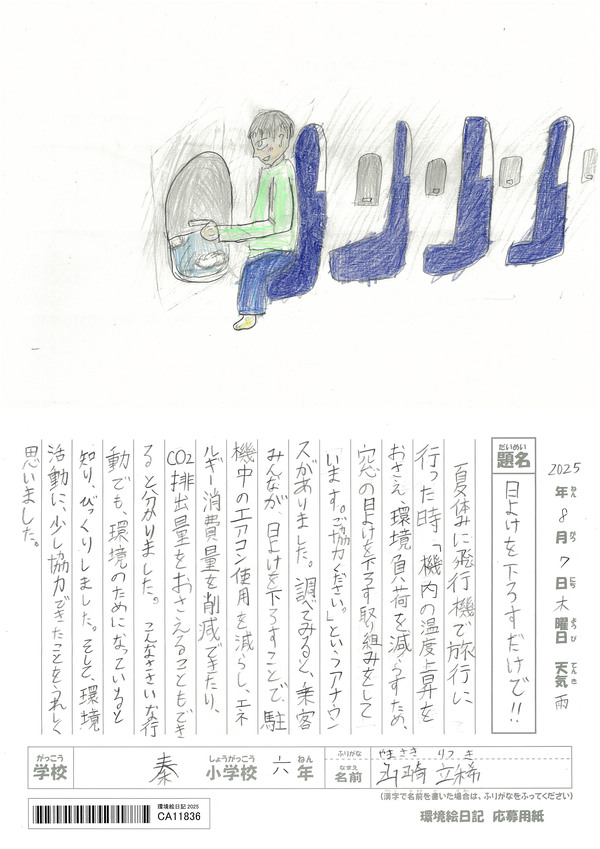 2025年8月7日木曜日 天気雨
ねん がつ にち ようび てんき
だいめい
題名
日よけを下ろすだけで!!
夏休みに飛行機で旅行に
行った時「機内の温度上昇を
おさえ、環境負荷を減らすため、
窓の日よけを下ろす取り組みをして
います。ご協力ください。」というアナウン
スがありました。調べてみると、乗客
みんなが、日よけを下ろすことで、駐
機中のエアコン使用を減らし、エネ
ルギー消費量を削減できたり、
CO2排出量をおさえることもでき
ると分かりました。こんなささいな行
動でも、環境のためになっていると
知り、びっくりしました。そして、環境
活動に、少し協力できたことをうれしく
思いました。
がっこう しょうがっこう ねん ふりがな やまさき りつき
学校 秦 小学校 六年 なまえ 名前 山﨑 立稀
(漢字で名前を書いた場合は、ふりがなをふってください)
環境絵日記 2025
CA11836
環境絵日記 応募用紙